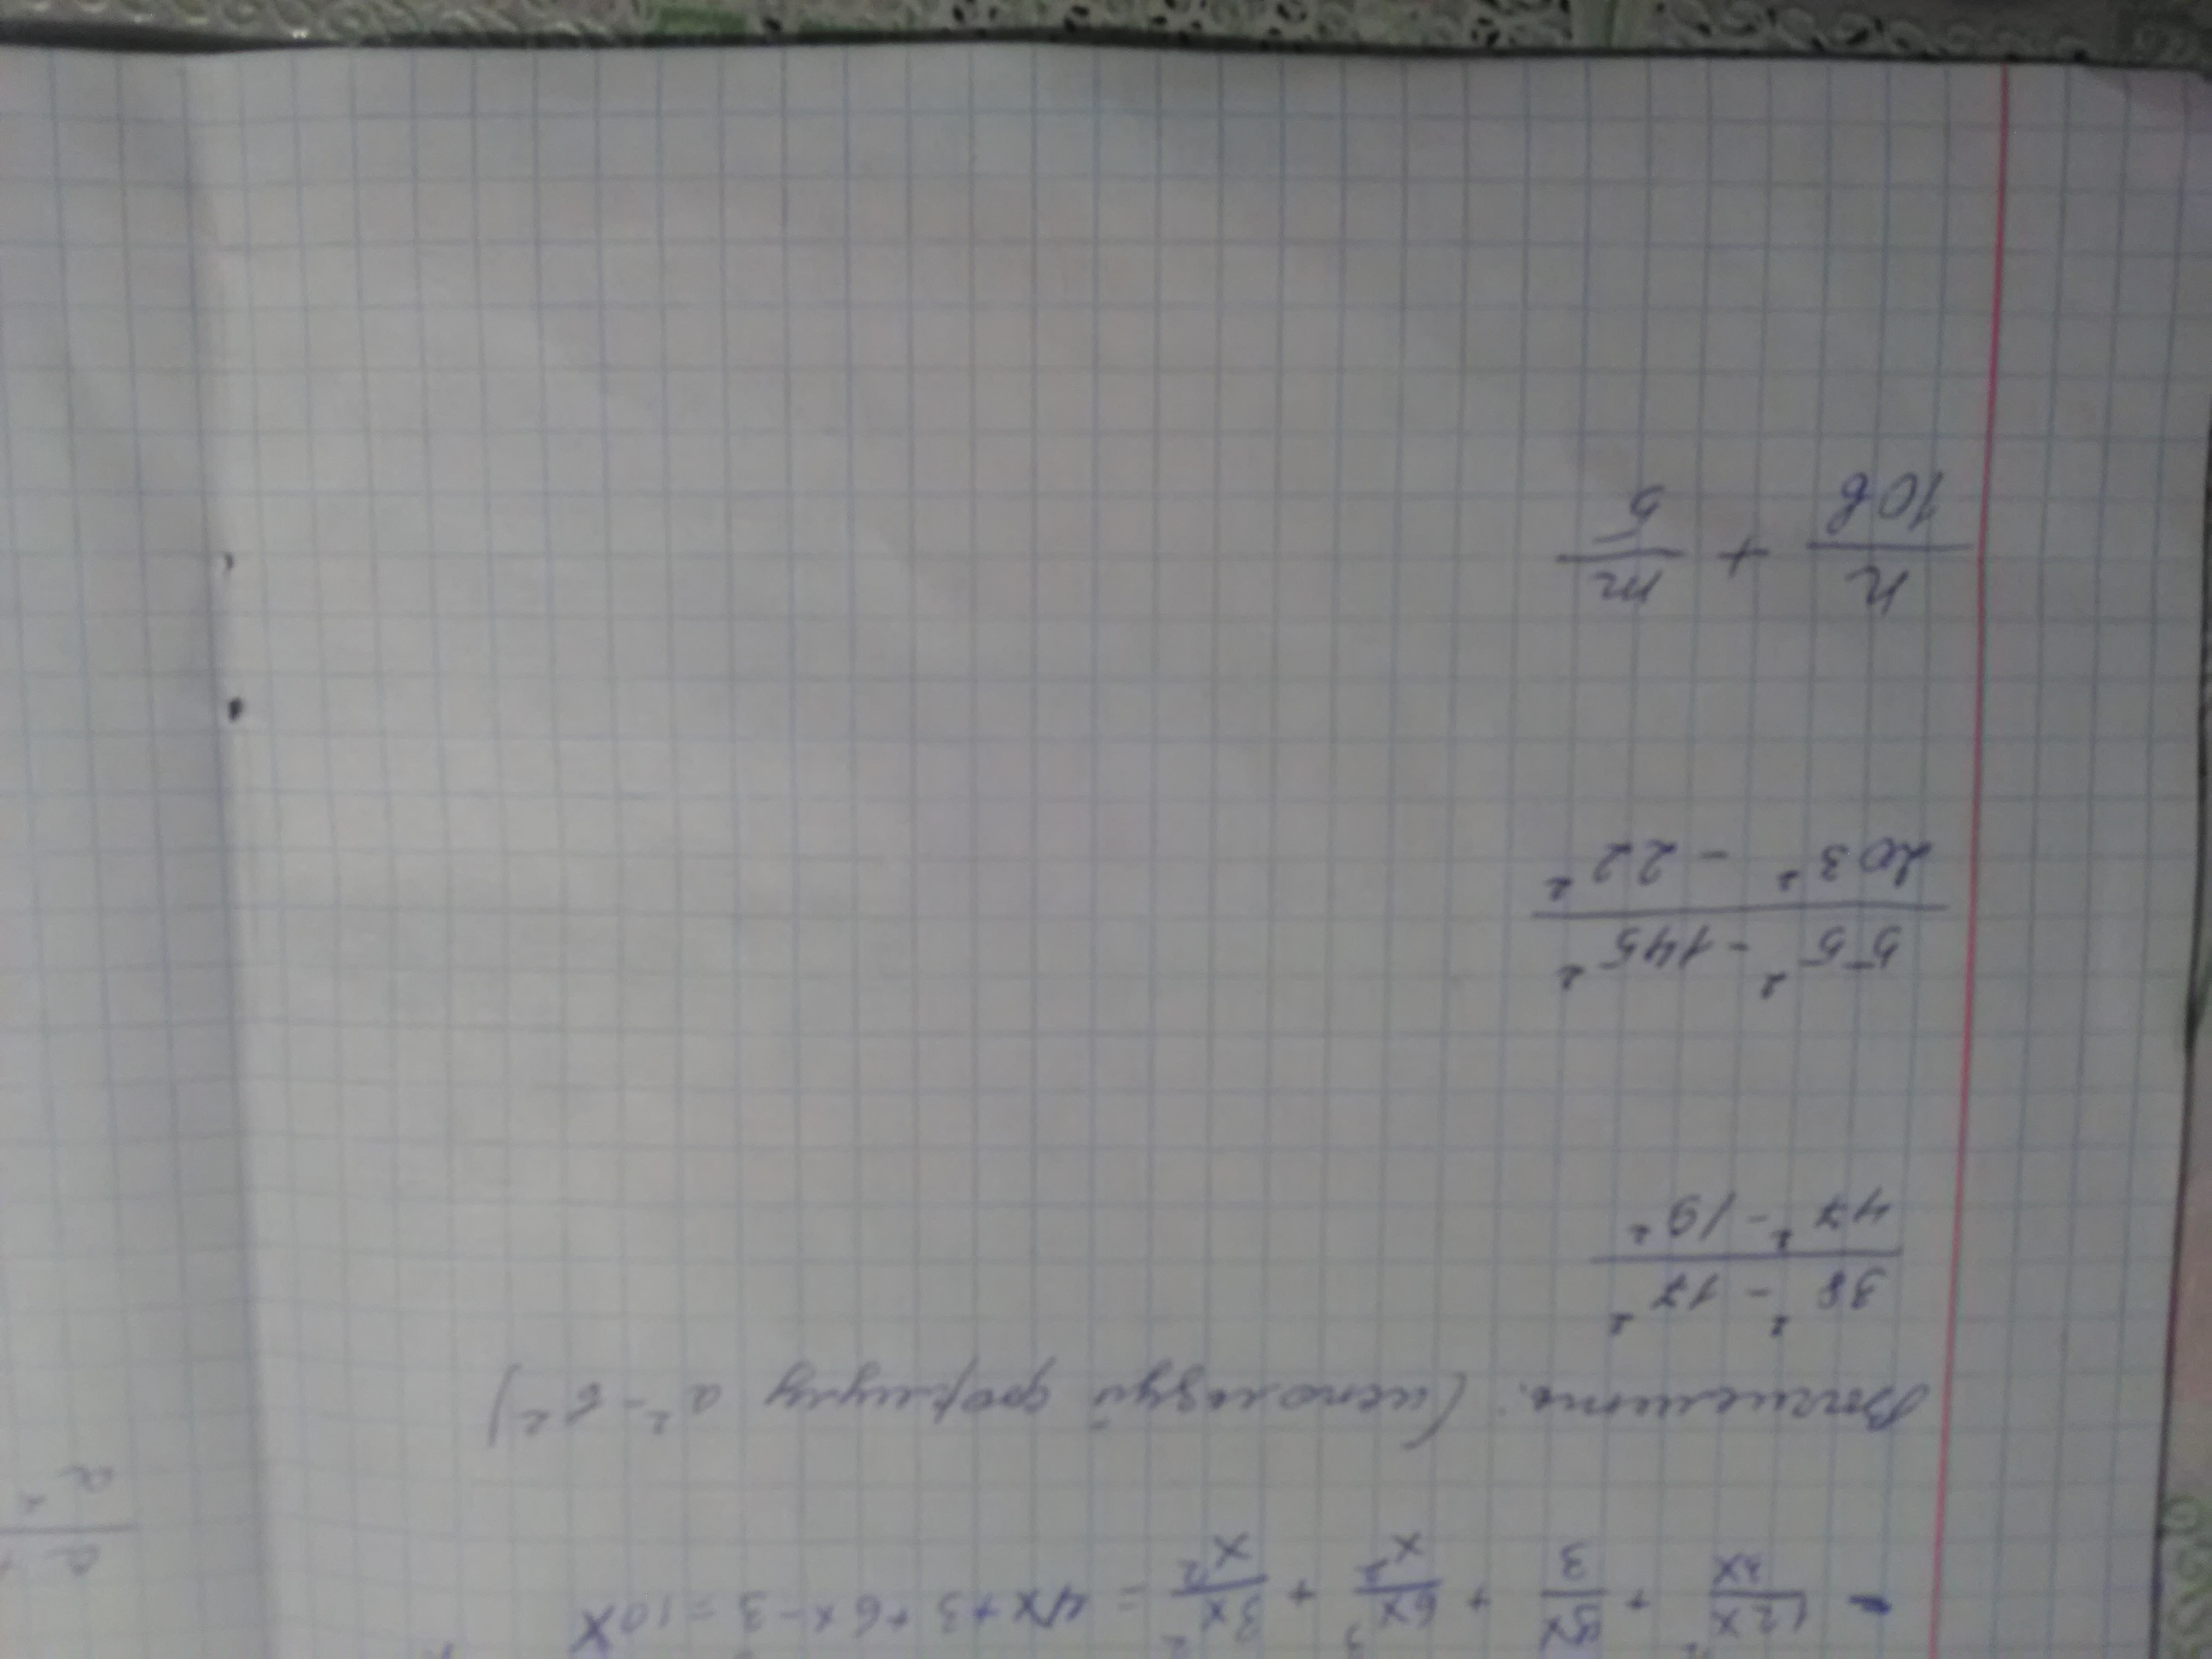 - 12x²/3x + 9x/3 + 6x³/x² + 3x²/x² = 4x+3+6x-3=10x
Вычислить. (используй формулу a²-b²)
38² - 17²
47² - 19²
55² - 145²
203² - 22²
n/10b + m/5